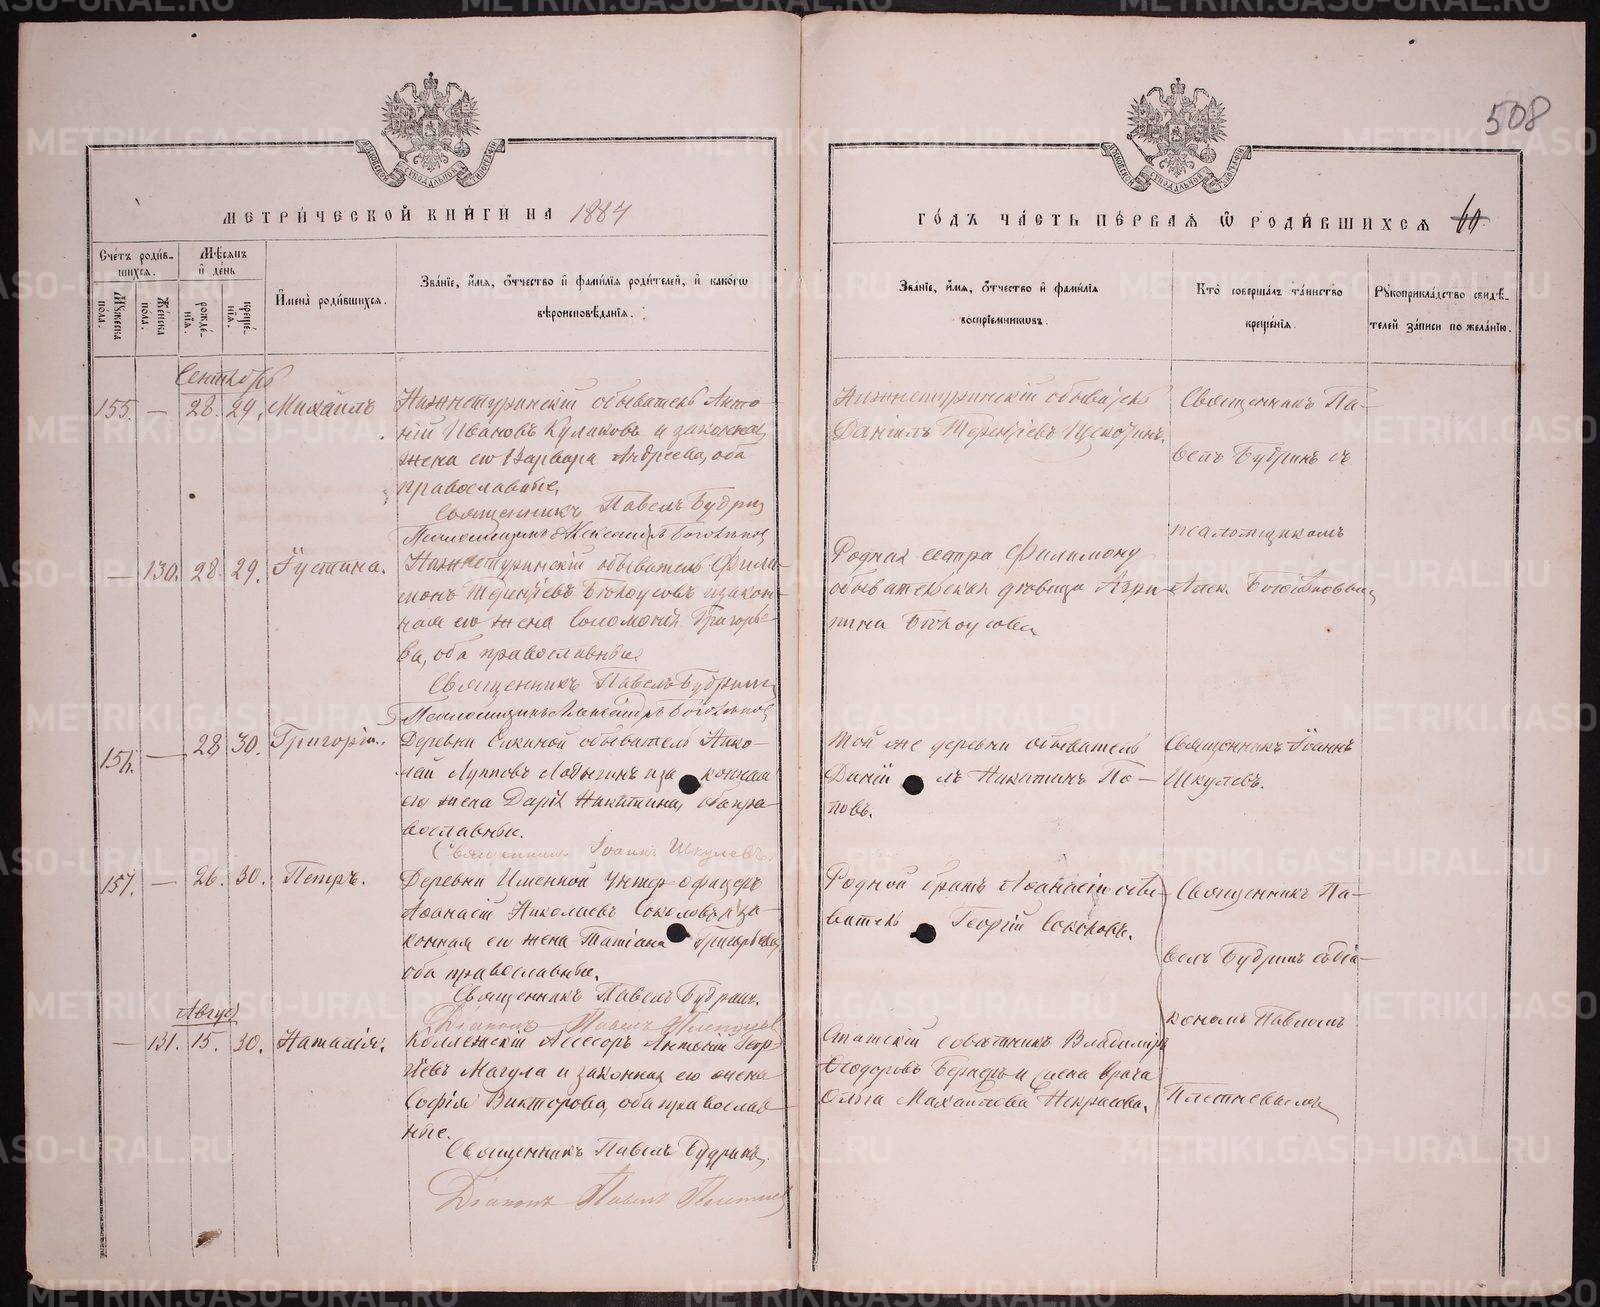 508
МЕТРИ́ЧЕСКОЙ КНИ́ГИ НА 1884
ГО́ДЪ ЧА́СТЬ ПЕ́РВАѦ Ѽ РОДИ́ВШИХСѦ
Сче́тъ роди́в-
шихсѧ.
Мꙋ́жеска пола.
Же́нска пола.
Мѣ́сѧцъ
и҆ де́нь
рожде́-
нїѧ.
креще́-
нїѧ.
И҆мена̀ роди́вшихсѧ.
Зва́нїе, и҆́мѧ, ѻ҆́тчество и҆ фами́лїѧ роди́телей, и҆ како́гѡ
вѣроисповѣ́данїѧ.
Зва́нїе, и҆́мѧ, ѻ҆́тчество и҆ фами́лїѧ
воспрїе́мникѡвъ.
Кто̀ соверша́лъ та́инство
креще́нїѧ.
Рꙋкоприкла́дство свидѣ́-
телей за́писи по жела́нїю.
Сентябрь
155. — 28. 29. Михаилъ
Нижнетуринскій обыватель Анто-
ній Ивановъ Куликовъ и законная
жена его Варвара Андреева, оба
православные.
Священникъ Павелъ Будринъ
Псаломщикъ Александръ Боголѣповъ
Нижнетуринскій обыватель
Даніилъ Терентіевъ
Священникъ Па-
велъ Будринъ съ
псаломщикомъ
Алек. Боголѣповымъ
— 130. 28. 29. Іустина.
Нижнетуринскій обыватель Фили-
монъ Терентіевъ Бѣлоусовъ и закон-
ная его жена Соломонія Григорье-
ва, оба православные.
Священникъ Павелъ Будринъ
Псаломщикъ Александръ Боголѣповъ
Родная сестра Филимону
обывательская дѣвица Агри-
пина Бѣлоусова
156. — 28 30. Григорій.
Деревни обыватель Нико-
лай Лупповъ Ладыгинъ и за конная
его жена Дарія Никитина, оба пра-
вославные.
Священникъ Іоаннъ Шкулевъ.
той же деревни обыватель
Даніи лъ Никитинъ По-
повъ.
Священникъ Іоаннъ
Шкулевъ.
157. — 26. 30. Петръ.
Деревни Именной Унтеръ офицеръ
Аѳанасій Николаевъ Соколовъ и за-
конная его жена Татіана Григорьева,
оба православные.
Священникъ Павелъ Будринъ.
Діаконъ Павелъ Плетневъ
Родной братъ Аѳанасію обы-
ватель Георгій Соколовъ.
Священникъ Па-
велъ Будринъ съ діа-
кономъ Павломъ
Плетневымъ
Август
— 131. 15. 30. Наталія.
Коллежскій Асессоръ Антоній Геор-
гіевъ Магула и законная его жена
Софія Викторова, оба православ-
ные.
Священникъ Павелъ Будринъ.
Діаконъ Павелъ Плетневъ
Статскій совѣтникъ Владиміръ
Ѳеодоровъ и жена врача
Ольга Михайлова Некрасова.
METRIKI.GASO-URAL.RU